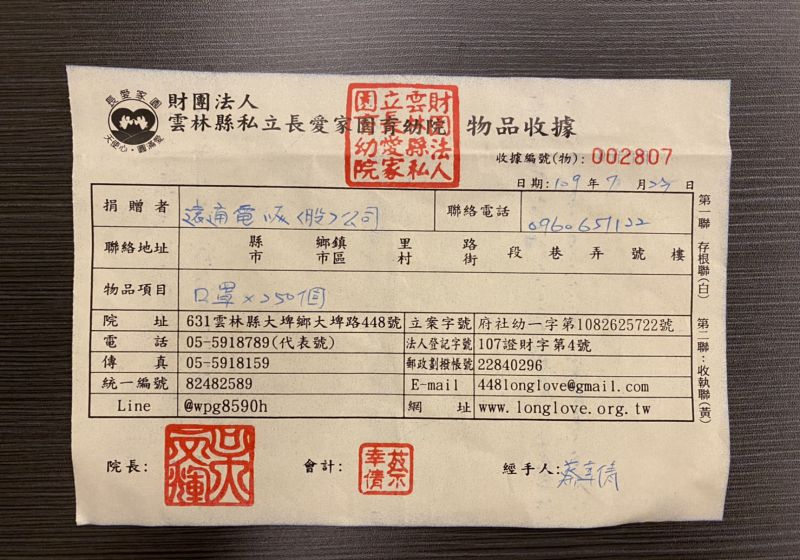 長愛家園
天使心·圓滿愛
財團法人
雲林縣私立長愛家園育幼院 物品收據
財團法人雲林縣私立長愛家園育幼院
收據編號(物): 002807
日期: 109 年 7 月 23 日
捐贈者 遠通電收(股)公司 聯絡電話 0960651122
聯絡地址 縣市 鄉鎮市區 里村 路街 段 巷 弄 號 樓
物品項目 口罩×250個
院址 631雲林縣大埤鄉大埤路448號 立案字號 府社幼一字第1082625722號
電話 05-5918789(代表號) 法人登記字號 107證財字第4號
傳真 05-5918159 郵政劃撥帳號 22840296
統一編號 82482589 E-mail 448longlove@gmail.com
Line @wpg8590h 網址 www.longlove.org.tw
第一聯 存根聯(白) 第二聯:收執聯(黃)
院長: 會計: 蔡宗幸倩 經手人: 蔡幸倩